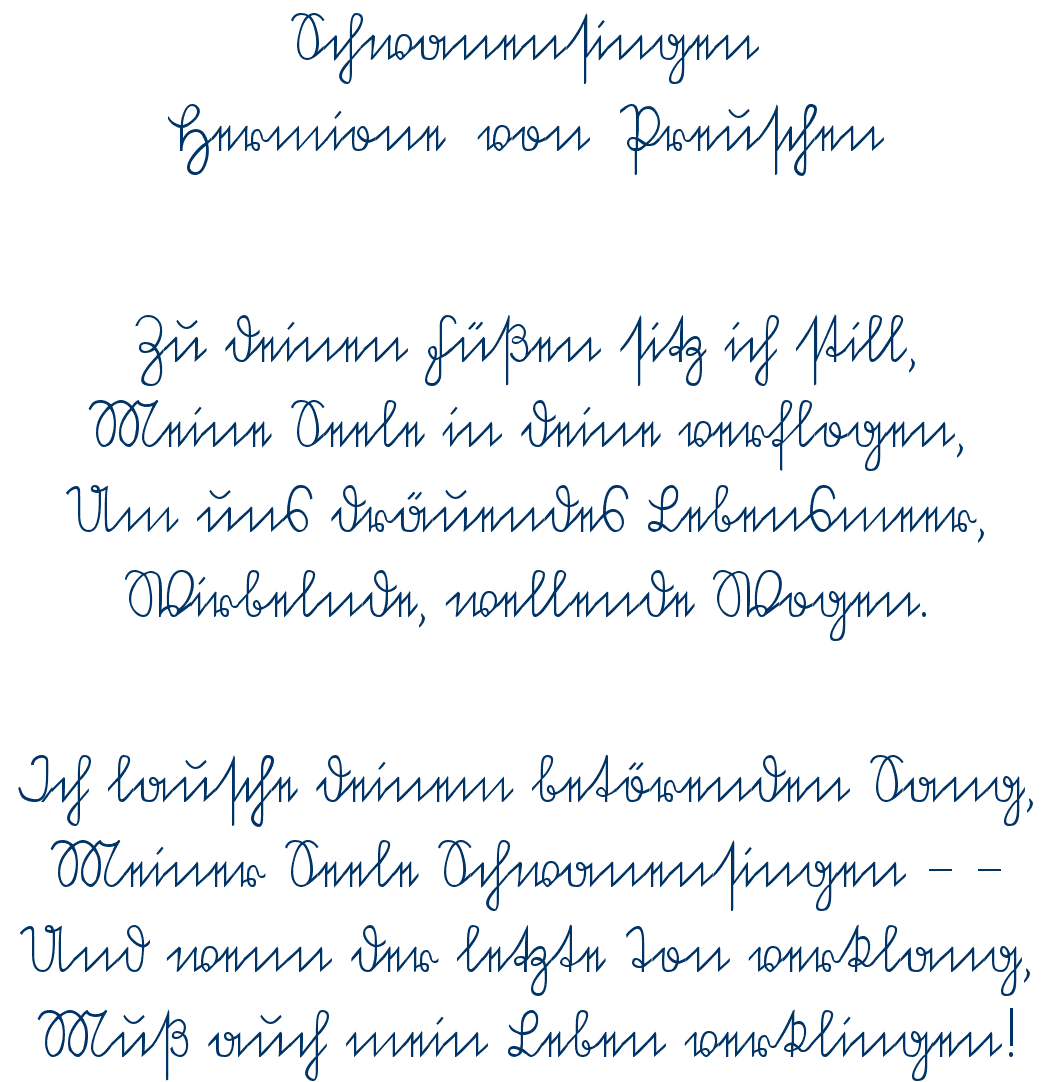 Schwanensingen
Hermione von Preuschen
Zu deinen Füßen sitz ich still,
Meine Seele in deine verflogen,
Um uns dräuendes Lebensmeer,
Wirbelnde, wellende Wogen.
Ich lausche deinem betörenden Sang,
Meiner Seele Schwanensingen – –
Und wenn der letzte Ton verklang,
Muß auch mein Leben verklingen!